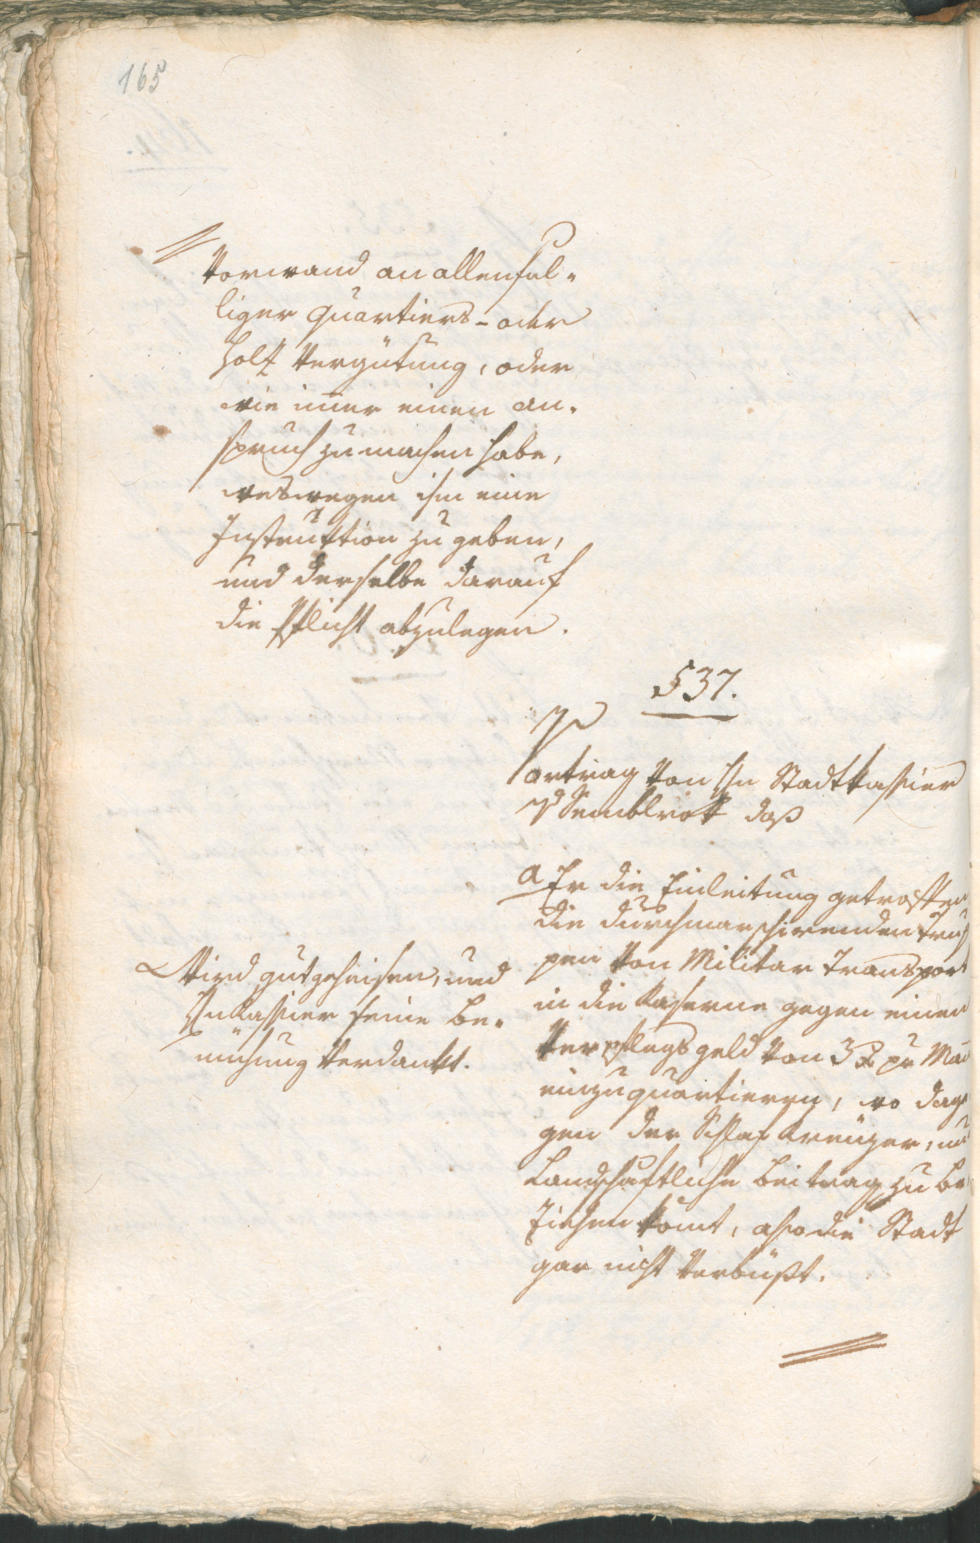 165
Vorwand an allenfal-
liger Quartiers- oder
Holz Vergütung, oder
wie imer einen An-
spruch zu machen habe,
weswegen ihm eine
Instruktion zu geben,
und derselbe darauf
die Pflicht abzulegen.
537.
Vortrag von Hn Stadtkassier
daß
a Er die Einleitung getroffen
die durchmarschirenden Trup
pen von Militar Transport
in die Kaserne gegen einen
Verpflegsgeld von 3 x pr Man
einzuquartieren, wo dage
gen der Schlaf Kreuzer, und
Landschaftliche Beitrag zu be
ziehen kömt, also die Stadt
gar nicht verbüßt.
Wird gutgeheisen, und
Hn Kassier seine Be-
mühung verdankt.